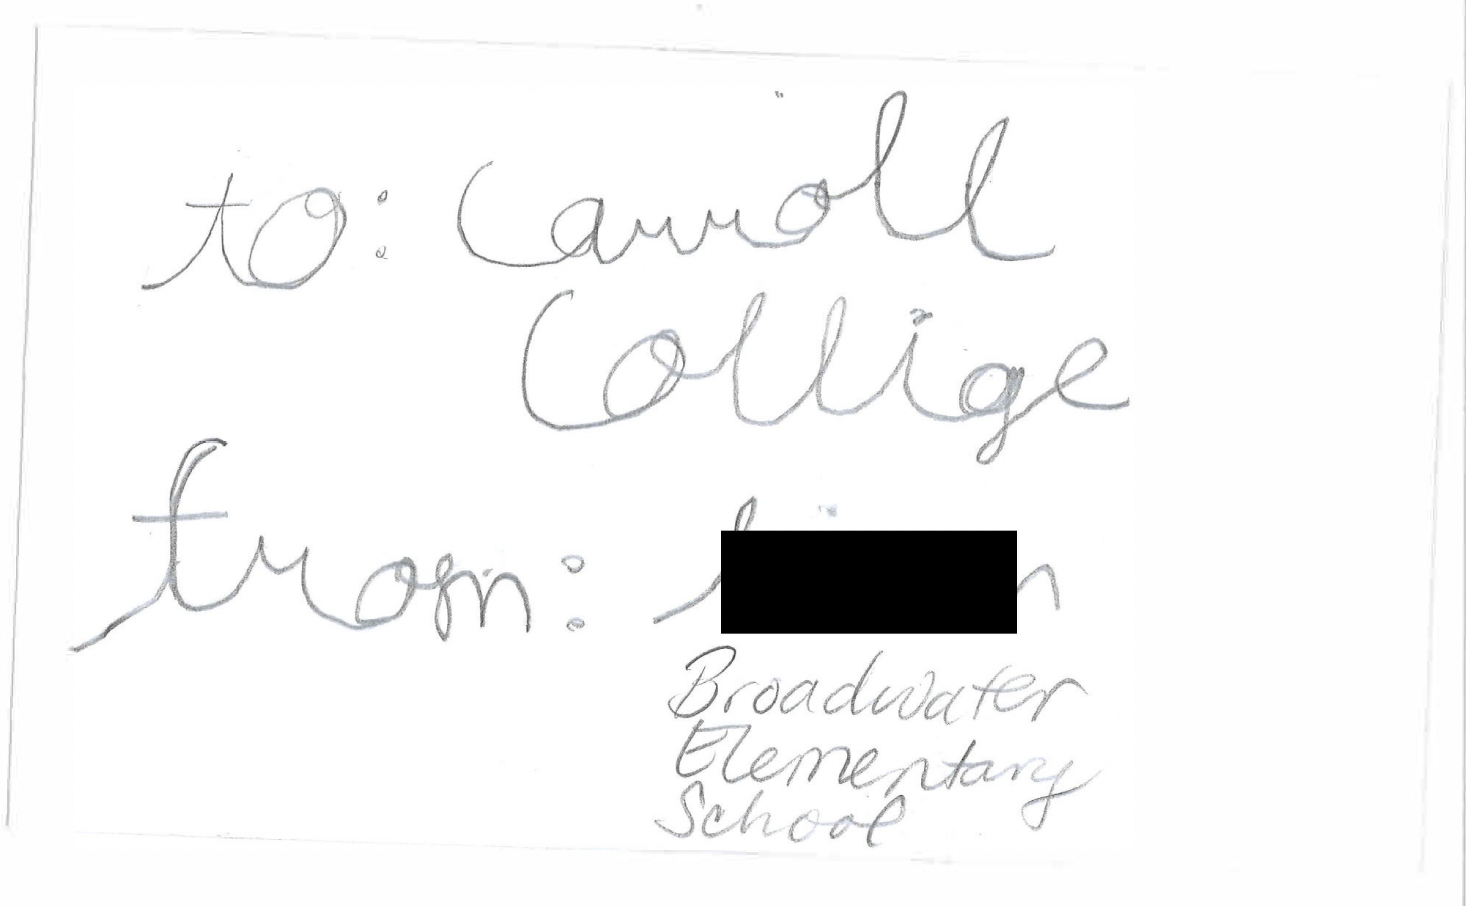 to: Carroll
Collige
from:
Broadwater
Elementary
School